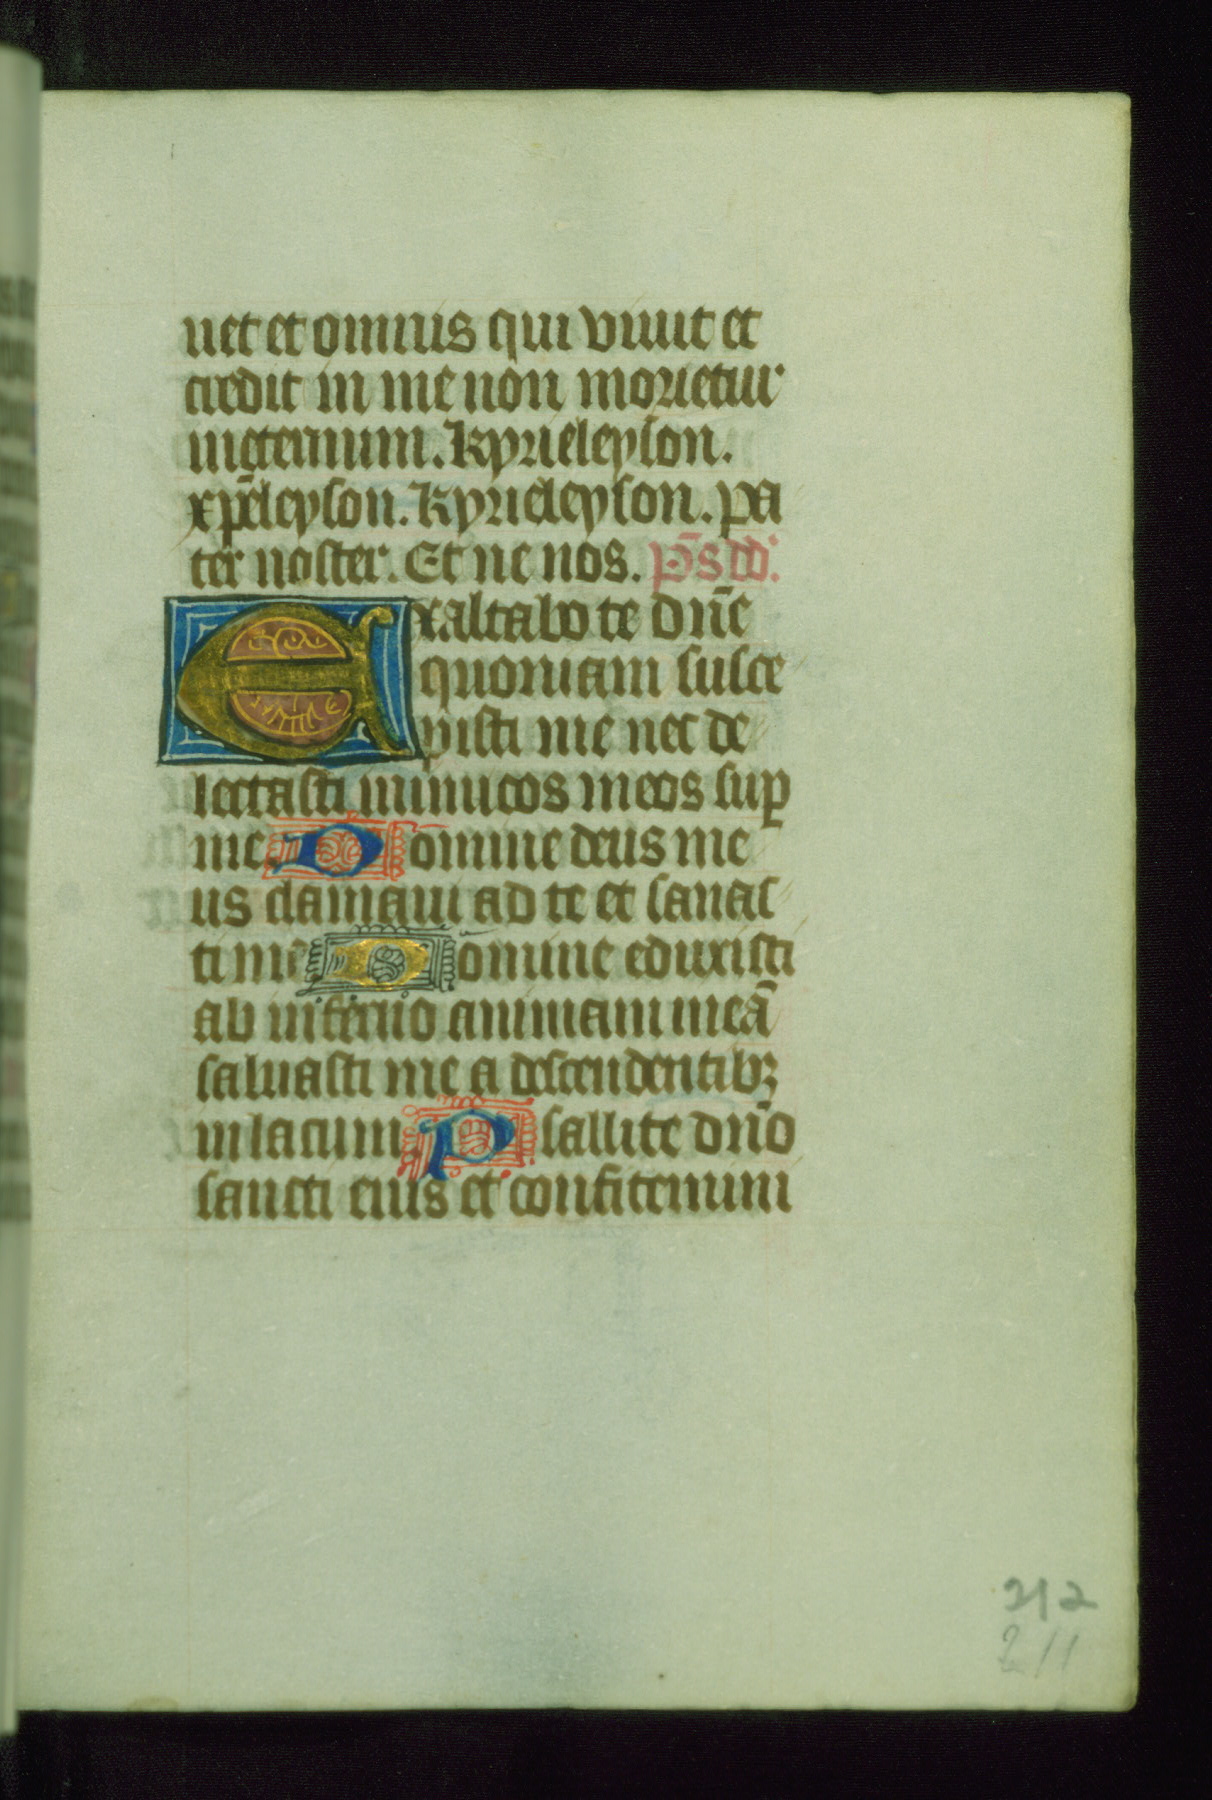 uet et omnis qui viuit et
credit in me non morietur
ineternum. Kyrieleyson.
xp̄eleyson. Kyrieleyson. pa
ter noster. Et ne nos. p̄s dd.
Exaltabo te dn̄e
quoniam susce
pisti me nec de
lectasti inimicos meos sup̄
me Domine deus me
us clamaui ad te et sanas
ti me Domine eduxisti
ab inferno animam meā
saluasti me a descendentibꝫ
in lacum Psallite dn̄o
sancti eius et confitemini
212
211